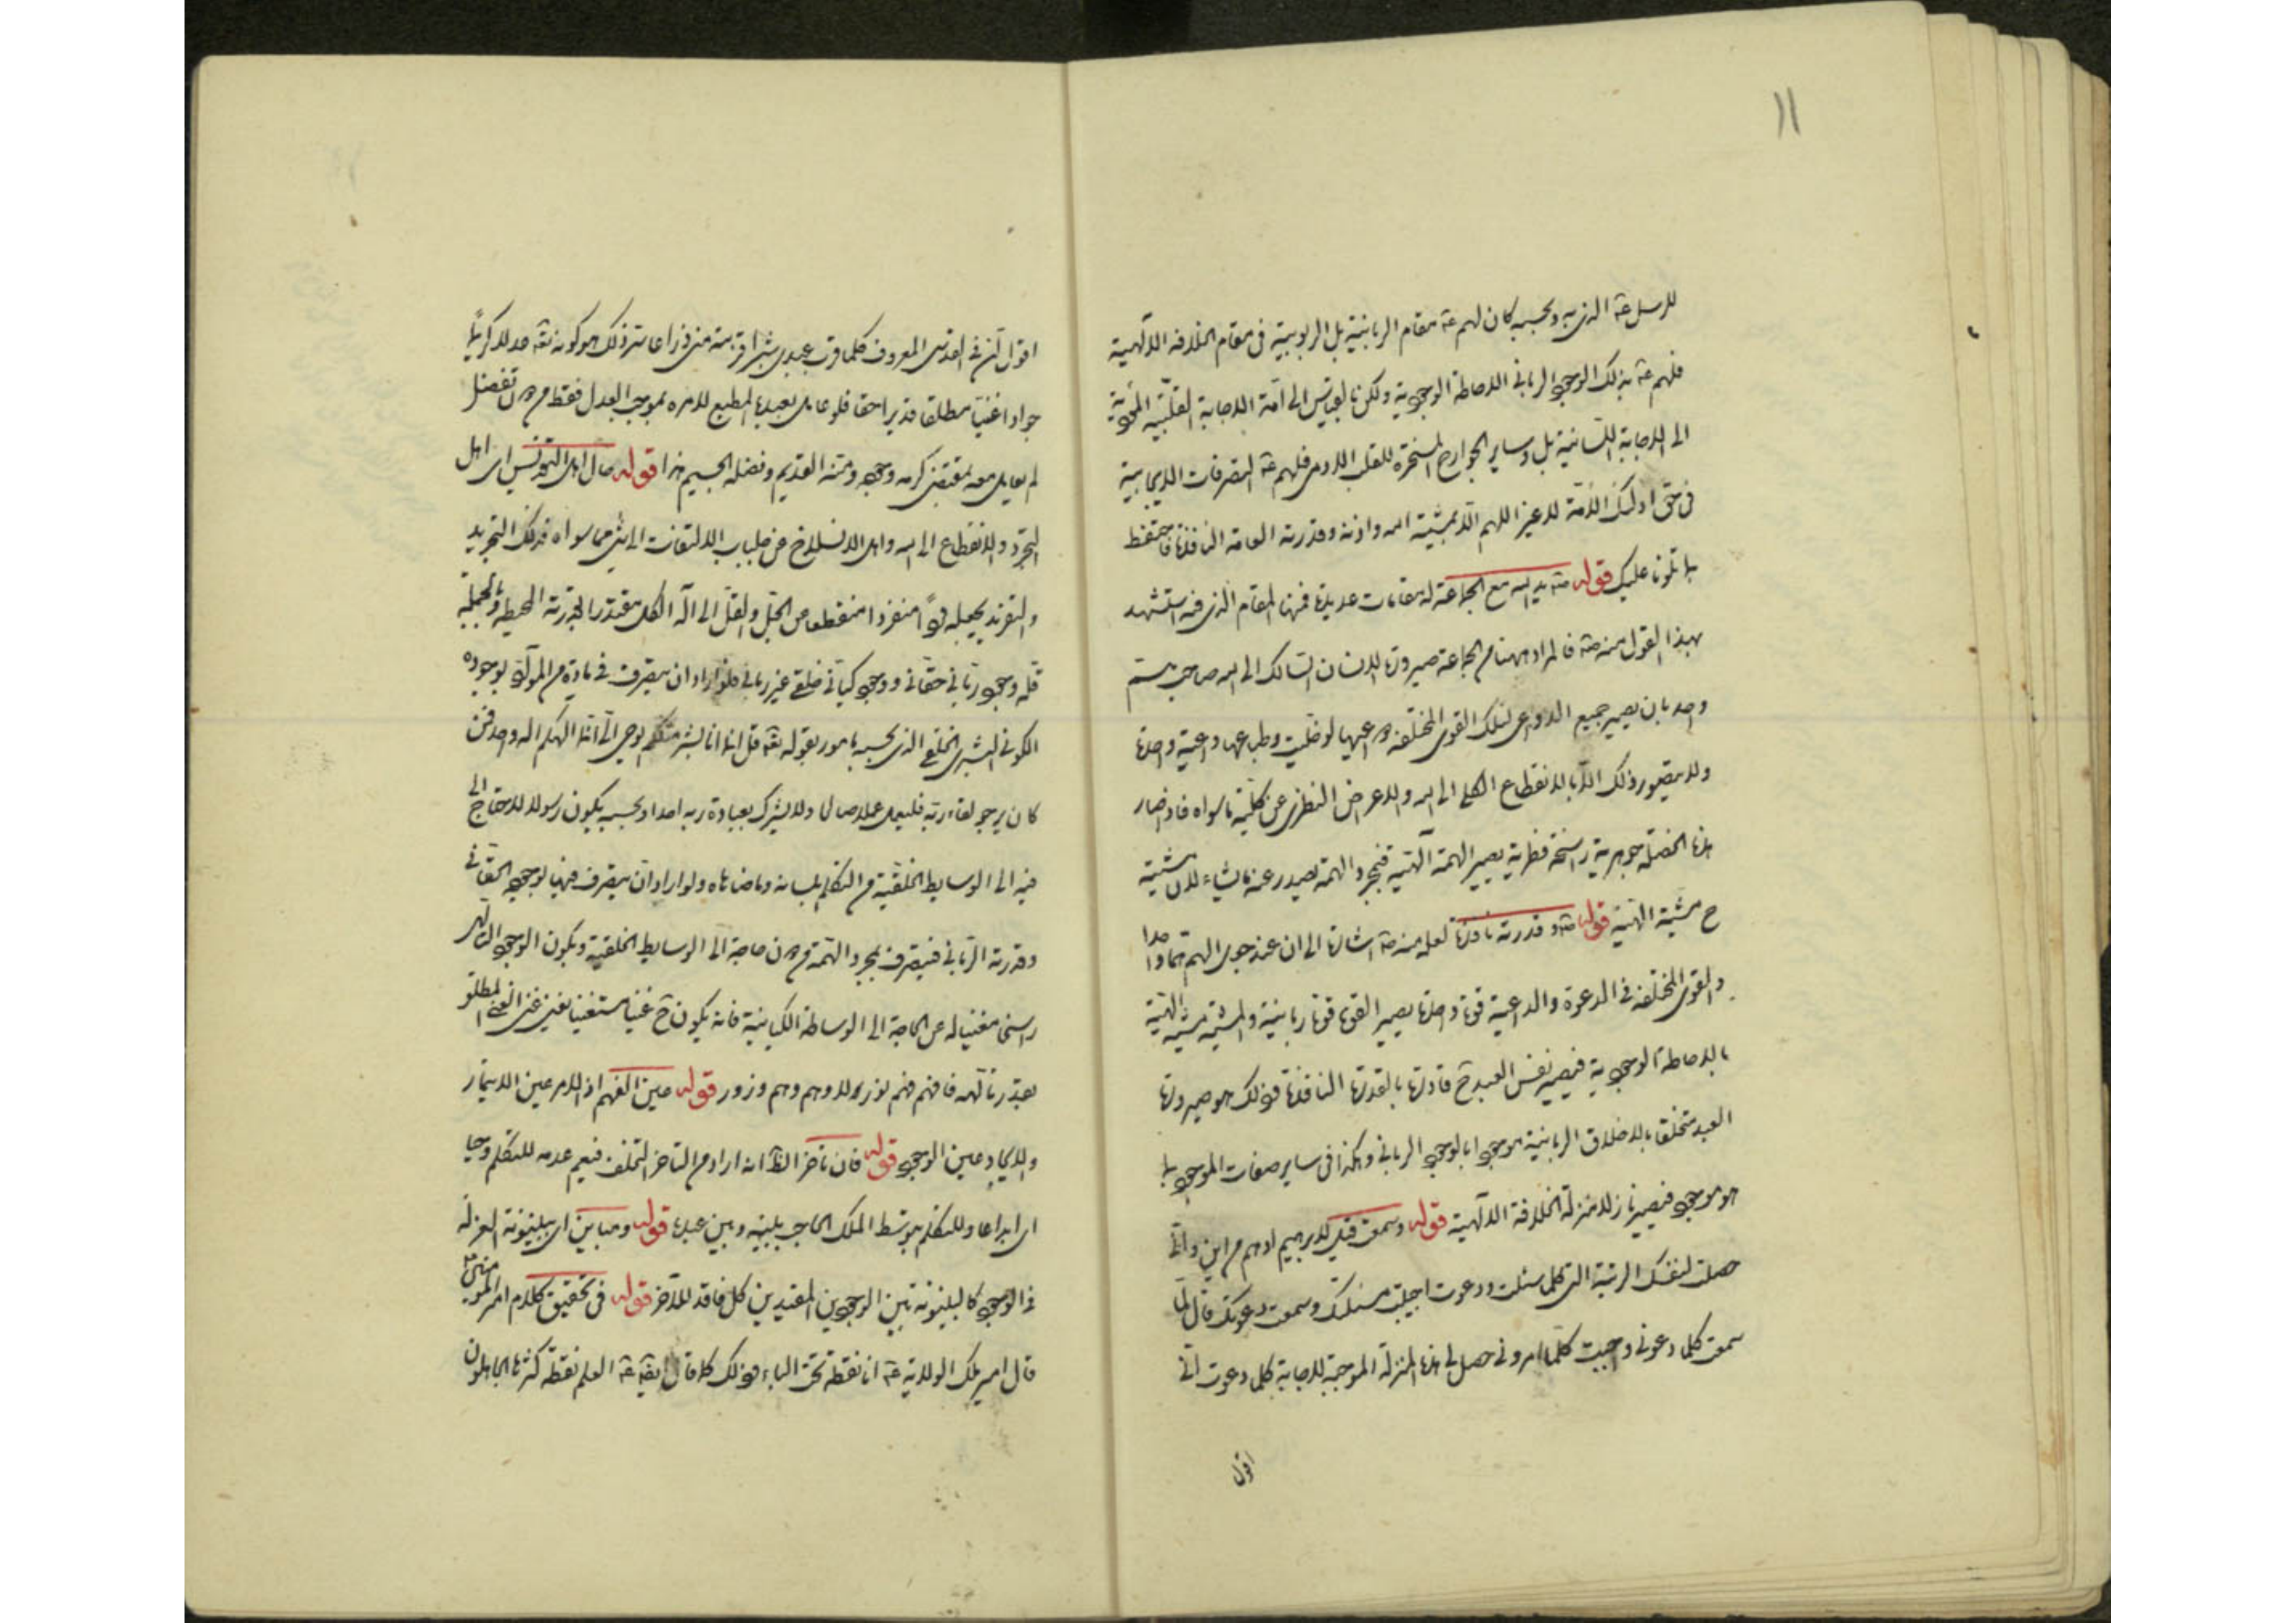 ١١
للرسل عة الذي به وبحسبه كان لهم عة مقام الربانية بل الربوبية في مقام الخلافة الالهية
فلهم عة بذلك الوجود الرباني الاحاطة الوجودية ولكن بالقياس الى امة الاجابة القلبية
الى الاجابة اللسانية بل وساير الجوارح المسخرة للقلب الادمى فلهم عة التصرفات الايجابية
في حق اولئك الامة لا غير اللهم الا بمشية الله واذنه وقدرته العامة النافذة فاحتفظ
بما تلونا عليك قوله صة يد الله مع الجماعة له مقامات عديدة فمنها المقام الذي فيه استشهد
بهذا القول منه صة فالمراد ههنا من الجماعة صيرورة الانسان السالك الى الله صاحب هم
واحد بان يصير جميع الدواعى لتلك القوى المختلفة دواعيها لو خليت وطباعها داعية واحدة
ولا يتصور ذلك الا بالانقطاع الكلى الى الله والاعراض النظرى عن كلية ما سواه فاذا صار
هذه الخصلة جوهرية راسخة فطرية يصير الهمة الهية فبمجرد الهمة يصدر عنه ما يشاء لان مشيته
ح مشية الهية قوله صة وقدرته نافذة لعله منه صة اشارة الى ان عند جعل الهم هما واحدا
والقوى المختلفة في الدعوة والداعية قوة واحدة يصير القوة قوة ربانية والمشية مشية الهية
بالاحاطة الوجودية فيصير نفس العبد ح قادرة بالقدرة النافذة فذلك هو صيرورة
العبد متخلقا بالاخلاق الربانية موجودا بالوجود الرباني وهكذا في ساير صفات الموجود بما
هو موجود فيصير نازلا منزلة الخلافة الالهية قوله وسمعت قيل لابرهيم ادهم من اين واني
حصلت لنفسك الرتبة التي كلما سئلت ودعوت اجيبت مسئلتك وسمعت دعوتك قال لما
سمعت كلما دعوني واجبت كلما امروني حصل لي هذه المنزلة الموجبة للاجابة كلما دعوت اني
اقول
اقول ان في القدسى المعروف كلما قرب عبدى شبرا قربت منه ذراعا سر ذلك هو كونه تعه عدلا كريما
جوادا غنيا مطلقا قديرا حقا فلو عامل بعبده المطيع لامره بموجب العدل فقط من دون تفضل
لم يعامل معه بمقتضى كرمه وجوده ومنه القديم وفضله الجسيم هذا قوله حال اهل التقديس اى اهل
التجرد والانقطاع الى الله واهل الانسلاخ عن جلباب الالتفات الى شئ مما سواه فذلك التجريد
والتفريد يجعله فردا منفردا منقطعا من الجل والقل الى اله الكل مقتدرا بقدرته المحيطة وبالجملة
فله وجود رباني حقاني ووجود كياني خلقي غير رباني فلو اراد ان يتصرف في مادة من المواد بوجوده
الكوني البشرى الخلقي الذي بحسبه مامور بقوله تعه قل انما انا بشر مثلكم يوحى الى انما الهكم اله واحد فمن
كان يرجو لقاء ربه فليعمل عملا صالحا ولا يشرك بعبادة ربه احدا وبحسبه يكون رسولا لاحتاج الى
فيه الى الوسايط الخلقية من التكلم بلسانه وما ضاهاه ولو اراد ان يتصرف فيها بوجوده الحقاني
وقدرته الرباني فيتصرف بمجرد الهمة من دون حاجة الى الوسايط الخلقية ويكون الوجود القاهر
راسخا مغنيا له عن الحاجة الى الوساطة الكيانية فانه يكون ح غنيا مستغنيا بغنى غنى الغنى المطلق
بقدرة الهه فافهم فهم نور لا وهم وزور قوله عين الفهم اذ الامر عين الايتمار
والايجاد عين الوجود قوله فان تاخر الظ انه اراد من التاخر التخلف فيعم عدمه للتكلم وحيا
اى ابداعا وللتكلم بتوسط الملك الحاجب بينه وبين عبده قوله ومباين اى ببينونة العزلة
في الوجود كالبينونة بين الوجودين المقيدين كل فاقد للاخر قوله في تحقيق كلام امير المؤمنين
قال امير ملك الولاية عة انا نقطة تحت الباء وذلك كما قال ايضا عة العلم نقطة كثرها الجاهلون